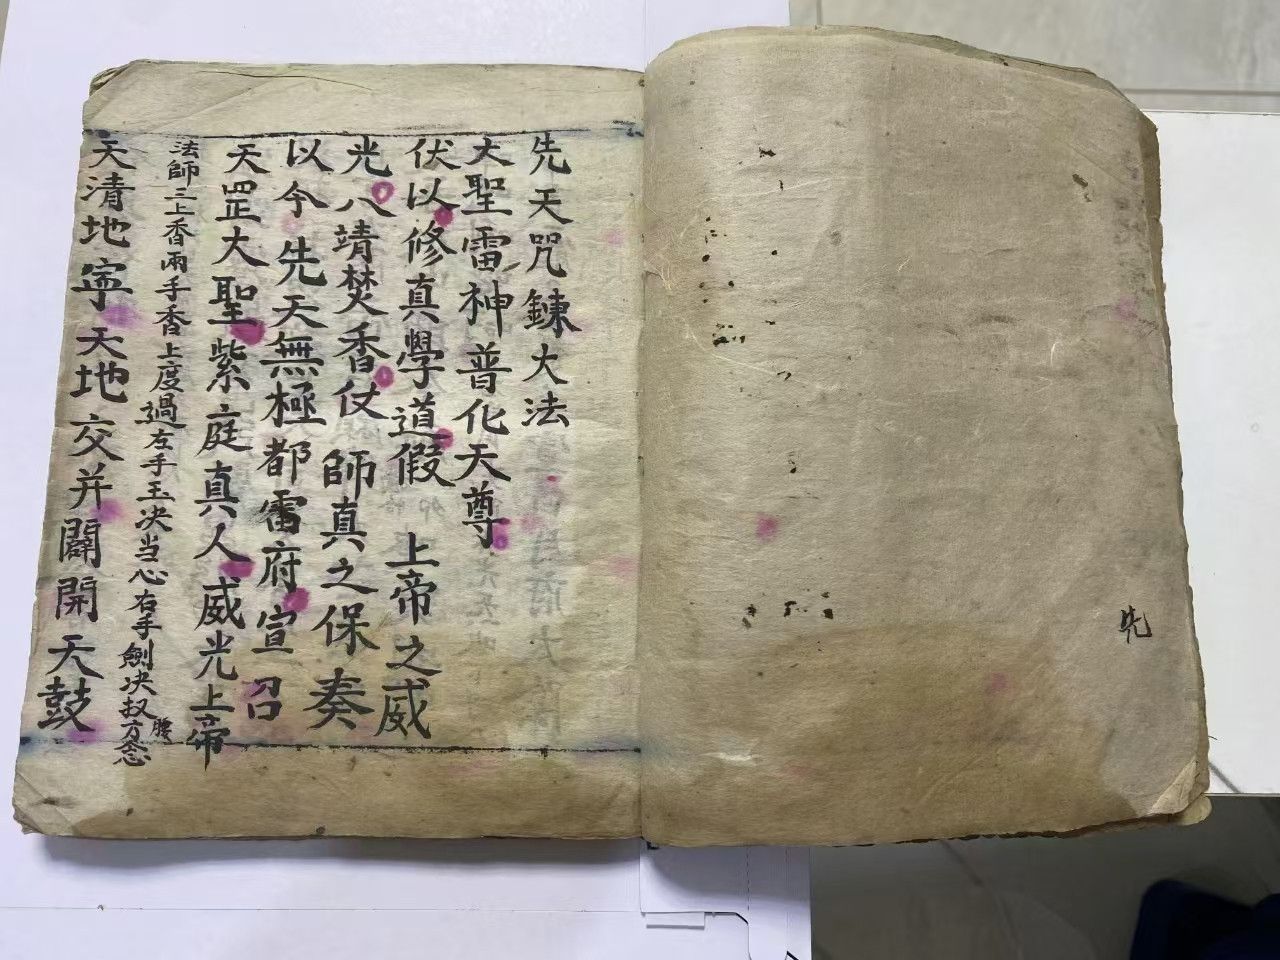 先
先天咒鍊大法
大聖雷神普化天尊
伏以修真學道假 上帝之威
光八靖焚香仗 師真之保奏
以今 先天無極都雷府宣召
天罡大聖紫庭真人威光上帝
法師三上香兩手香上度過左手玉决当心右手劍决扠腰方念
天清地寜天地交并闢開天鼓